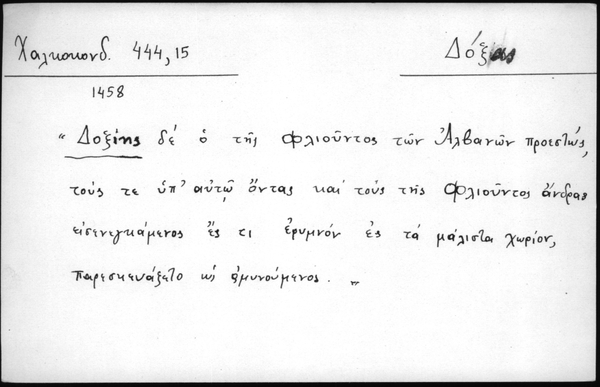 Χαλκοκονδ. 444, 15
Δόξας
1458
" Δοξίης δέ ὁ τῆς Φλιοῦντος τῶν Ἀλβανῶν προεστώς,
τούς τε ὑπ' αὐτῷ ὄντας καί τούς τῆς Φλιοῦντος ἄνδρας
εἰσενεγκάμενος ἔς τι ἐρυμνόν ἐς τά μάλιστα χωρίον,
παρεσκευάζετο ὡς ἀμυνούμενος. "